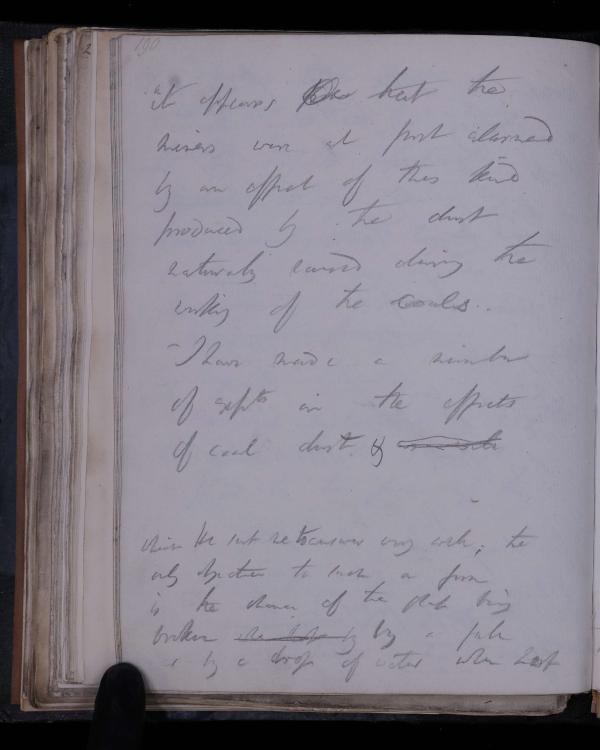 190
it appears that the
miners were at first alarmed
by an effect of this kind
produced by the dust
naturally raised during the
working of the coals.
I have made a number
of expts on the effects
of coal dust by
the
only objection to such a form
is the chance of the glass being
broken by a fall
or by a drop of water when heat